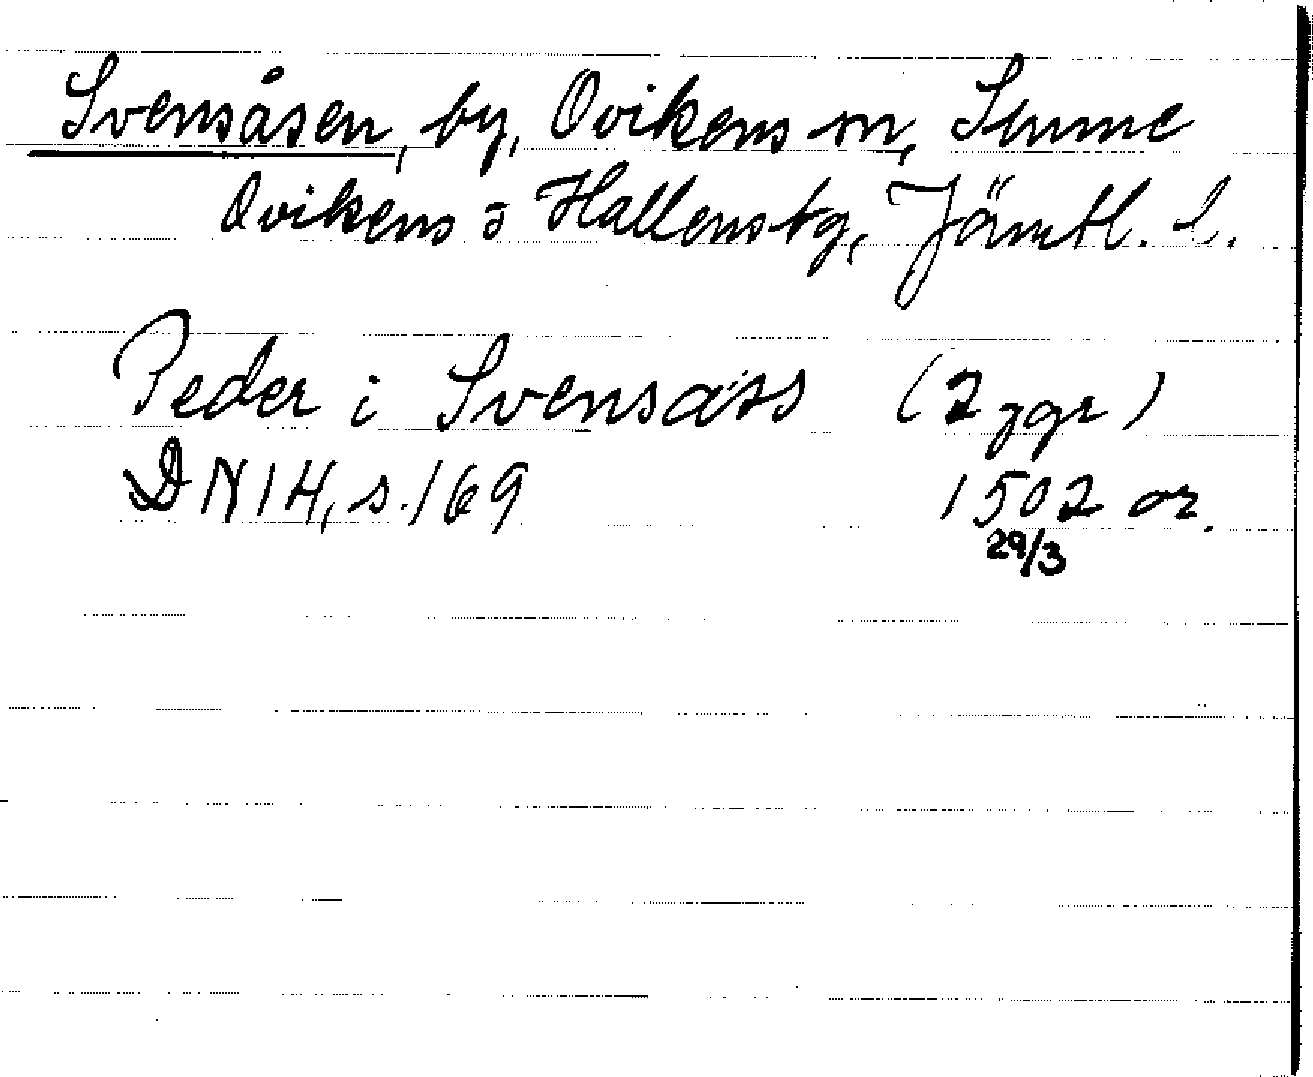 Svensåsen, by, Ovikens sn, Sunne
Ovikens o Hallens tg, Jämtl. l.
Peder i Svensaass (2 ggr)
DN 14, s. 169 1502 or.
29/3